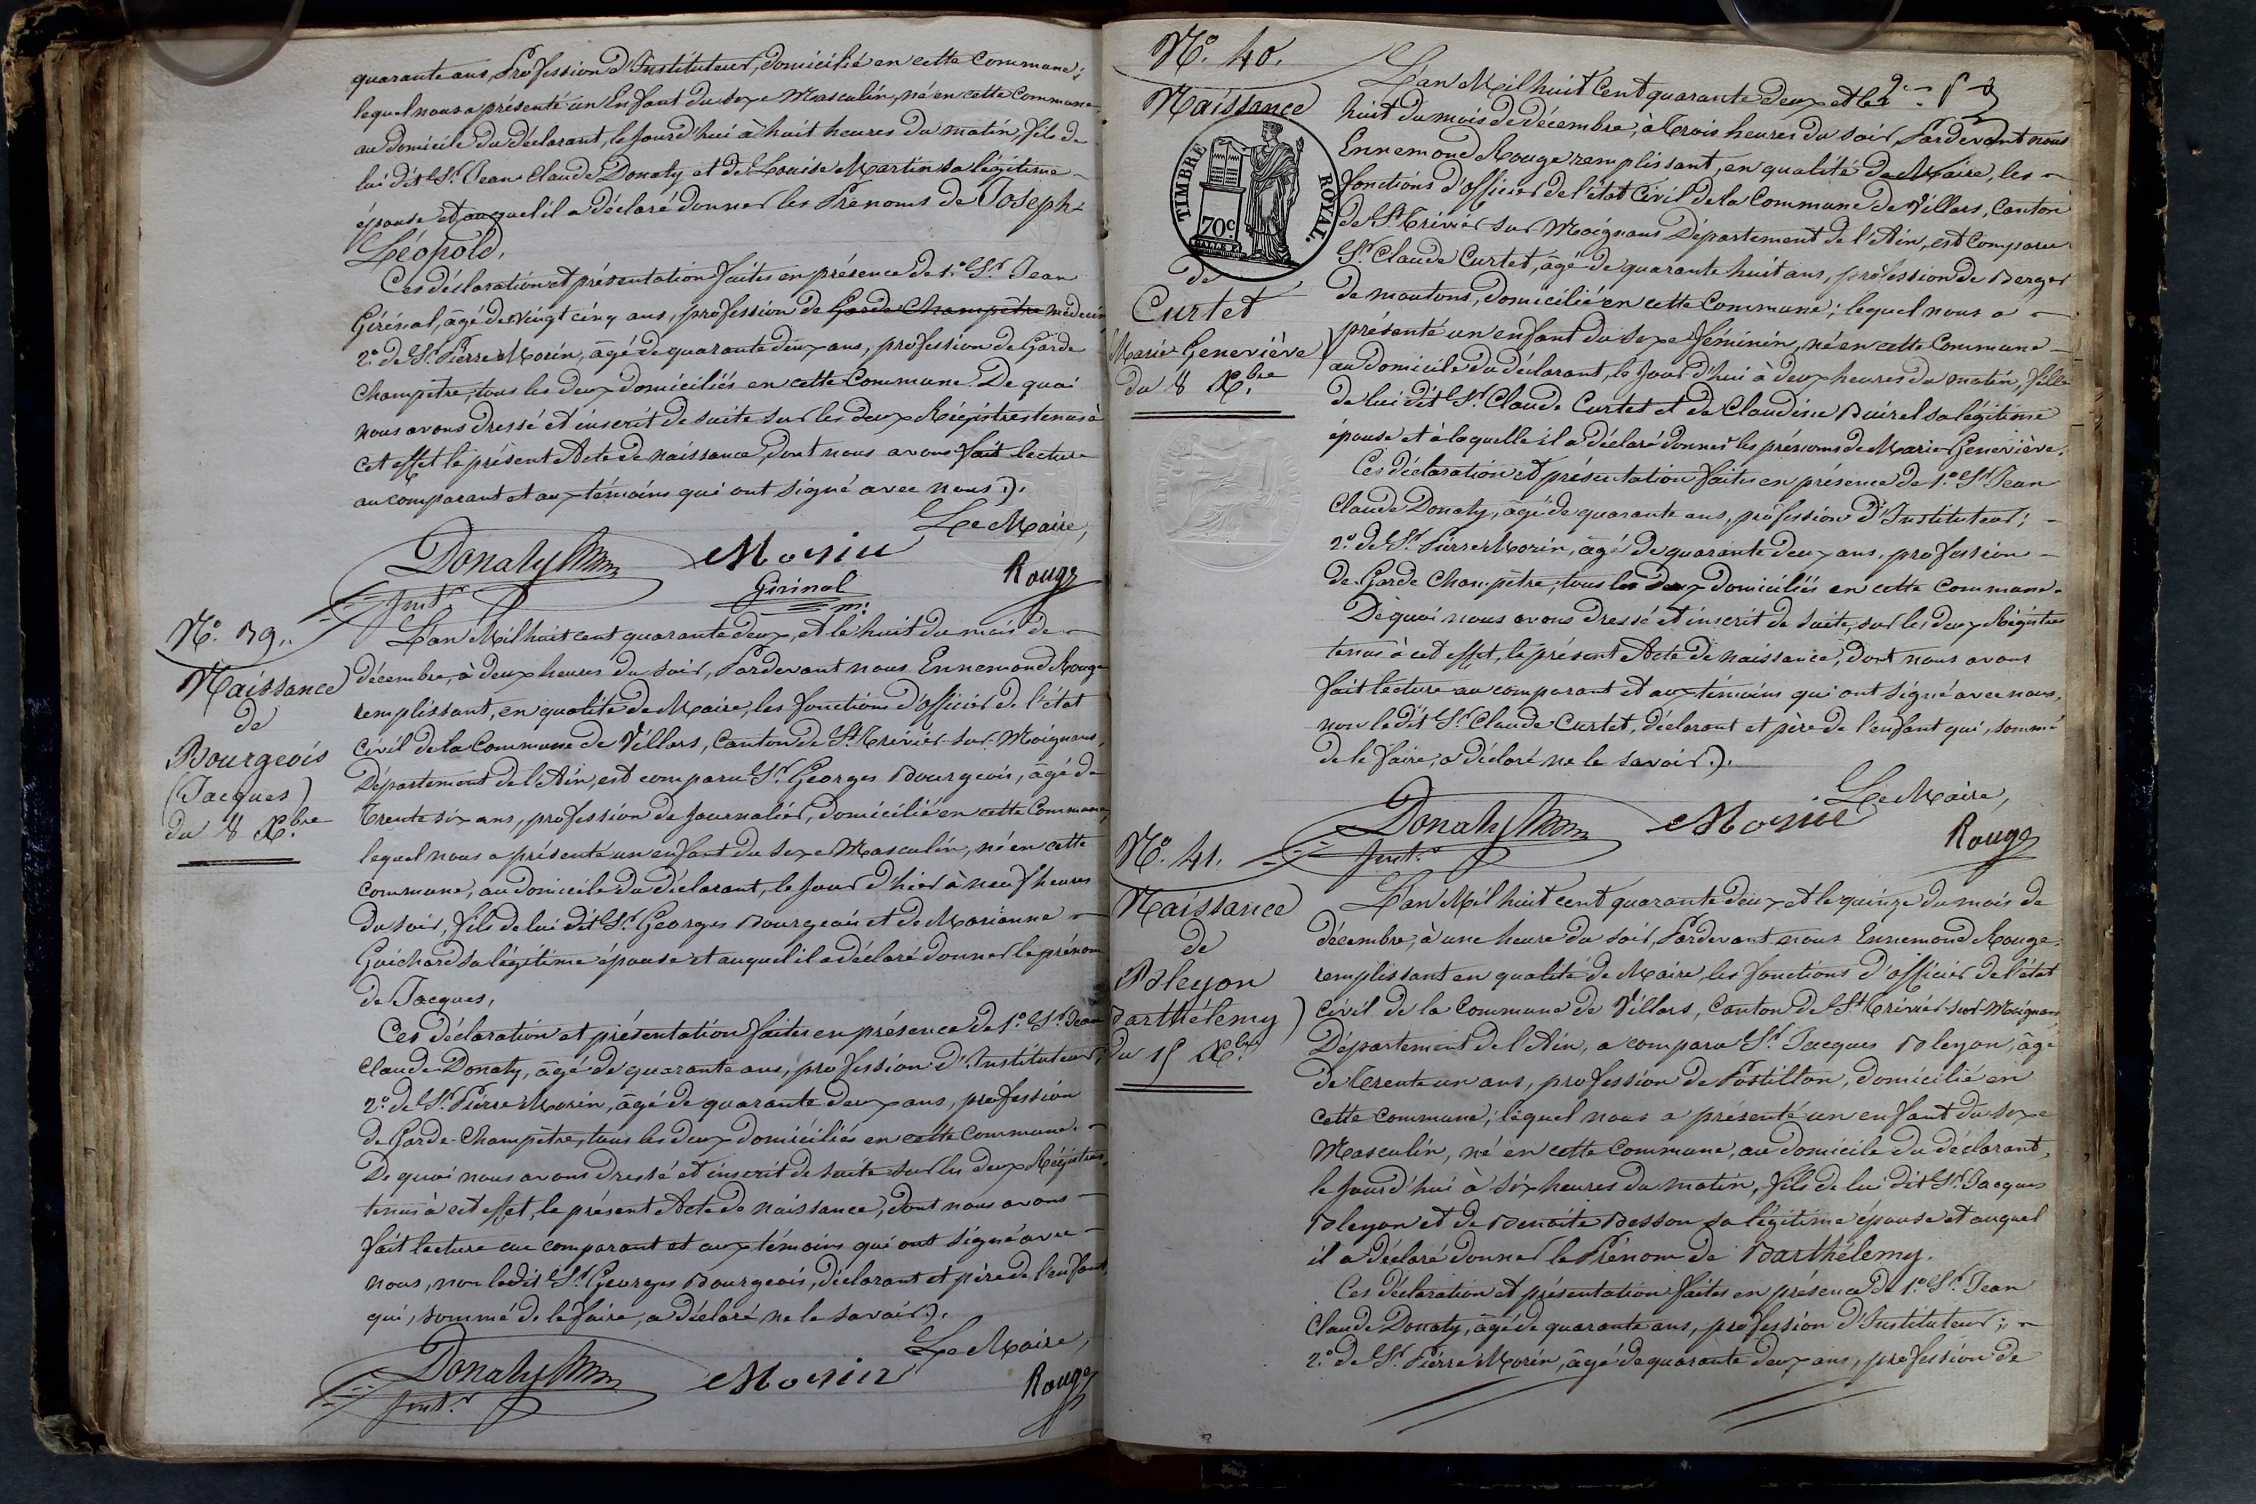 quarante ans, Profession d'Instituteur, domicilié en cette Commune;
lequel nous a présenté un Enfant du sexe Masculin, né en cette Commune
au domicile du déclarant, le jourd'hui à huit heures du matin, fils de
lui dit Sr. Jean Claude Donaty et de Louise Martin sa légitime
épouse et auquel il a déclaré donner les Prénoms de Joseph
Léopold.
Ces déclaration et présentation faites en présence de 1.° Sr. Jean
Girinal, âgé de vingt cinq ans, profession de Garde Champêtre médecin
2.° de Sr. Pierre Morin, âgé de quarante deux ans, profession de Garde
champêtre, tous les deux domiciliés en cette Commune. De quoi
nous avons dressé et inscrit de suite sur les deux Régistres tenus à
cet effet le présent Acte de naissance, dont nous avons fait lecture
au comparant et aux témoins qui ont signé avec nous.
Le Maire,
Donaty
Instr.
Morin
Girinal
m.
Rouge
N.° 39.
Naissance
de
Bourgeois
(Jacques)
du 8 Xbre
L'an Mil huit cent quarante deux, et le huit du mois de
décembre, à deux heures du soir, Pardevant nous Ennemond Rouge
remplissant, en qualité de Maire, les fonctions d'officier de l'état
civil de la Commune de Villars, Canton de St. Trivier-sur-Moignans,
Département de l'Ain, est comparu Sr. Georges Bourgeois, âgé de
trente six ans, profession de journalier, domicilié en cette Commune,
lequel nous a présenté un enfant du sexe Masculin, né en cette
commune, au domicile du déclarant, le jour d'hier à neuf heures
du soir, fils de lui dit Sr. Georges Bourgeois et de Marianne
Guichard sa légitime épouse et auquel il a déclaré donner le prénom
de Jacques,
Ces déclaration et présentation faites en présence de 1.° Sr. Jean
Claude Donaty, âgé de quarante ans, profession d'Instituteur;
2.° de Sr. Pierre Morin, âgé de quarante deux ans, profession
de Garde-Champêtre, tous les deux domiciliés en cette commune.
De quoi nous avons dressé et inscrit de suite sur les deux Régistres,
tenus à cet effet, le présent Acte de naissance, dont nous avons
fait lecture au comparant et aux témoins qui ont signé avec
nous, non ledit Sr. Georges Bourgeois, déclarant et père de l'enfant,
qui, sommé de le faire, a déclaré ne le savoir.
Le Maire,
Donaty
Instr.
Morin
Rouge
N.° 40.
Naissance
TIMBRE ROYAL.
70c.
de
Curtet
Marie Geneviève
du 8 Xbre
L'an Mil huit Cent quarante deux et le
huit du mois de décembre, à trois heures du soir, Pardevant nous
Ennemond Rouge remplissant, en qualité de Maire, les
fonctions d'officier de l'état Civil de la Commune de Villars, Canton
de St. Trivier sur Moignans Département de l'Ain, est Comparu
Sr. Claude Curtet, âgé de quarante huit ans, profession de Berger
de moutons, domicilié en cette Commune; lequel nous a
présenté un enfant du sexe féminin, né en cette Commune
au domicile du déclarant, le jour d'hui à deux heures du matin, fille
de lui dit Sr. Claude Curtet et de Claudine Buirel sa légitime
épouse et à laquelle il a déclaré donner les prénoms de Marie Geneviève.
Ces déclaration et présentation faites en présence de 1.° Sr. Jean
Claude Donaty, âgé de quarante ans, profession d'Instituteur;
2.° de Sr. Pierre Morin, âgé de quarante deux ans, profession
de Garde Champêtre, tous les deux domiciliés en cette commune.
De quoi nous avons dressé et inscrit de suite, sur les deux Régistres
tenus à cet effet, le présent Acte de naissance, dont nous avons
fait lecture au comparant et aux témoins qui ont signé avec nous,
non ledit Sr. Claude Curtet, déclarant et père de l'enfant qui, sommé
de le faire, a déclaré ne le savoir.
Le Maire,
Donaty
Instr.
Morin
Rouge
N.° 41.
Naissance
de
Bleyon
Barthélemy
du 15 Xbre
L'an Mil huit cent quarante deux et le quinze du mois de
décembre, à une heure du soir, Pardevant nous Ennemond Rouge
remplissant en qualité de Maire, les fonctions d'officier de l'état
civil de la Commune de Villars, Canton de St. Trivier-sur-Moignans
Département de l'Ain, a comparu Sr. Jacques Bleyon, âgé
de trente un ans, profession de Postillon, domicilié en
cette commune; lequel nous a présenté un enfant du sexe
Masculin, né en cette Commune, au domicile du déclarant,
le jourd'hui à six heures du matin, fils de lui dit Sr. Jacques
Bleyon et de Benoite Besson sa légitime épouse et auquel
il a déclaré donner le Prénom de Barthélemy.
Ces déclaration et présentation faites en présence de 1.° Sr. Jean
Claude Donaty, âgé de quarante ans, profession d'Instituteur;
2.° de Sr. Pierre Morin, âgé de quarante deux ans, profession de